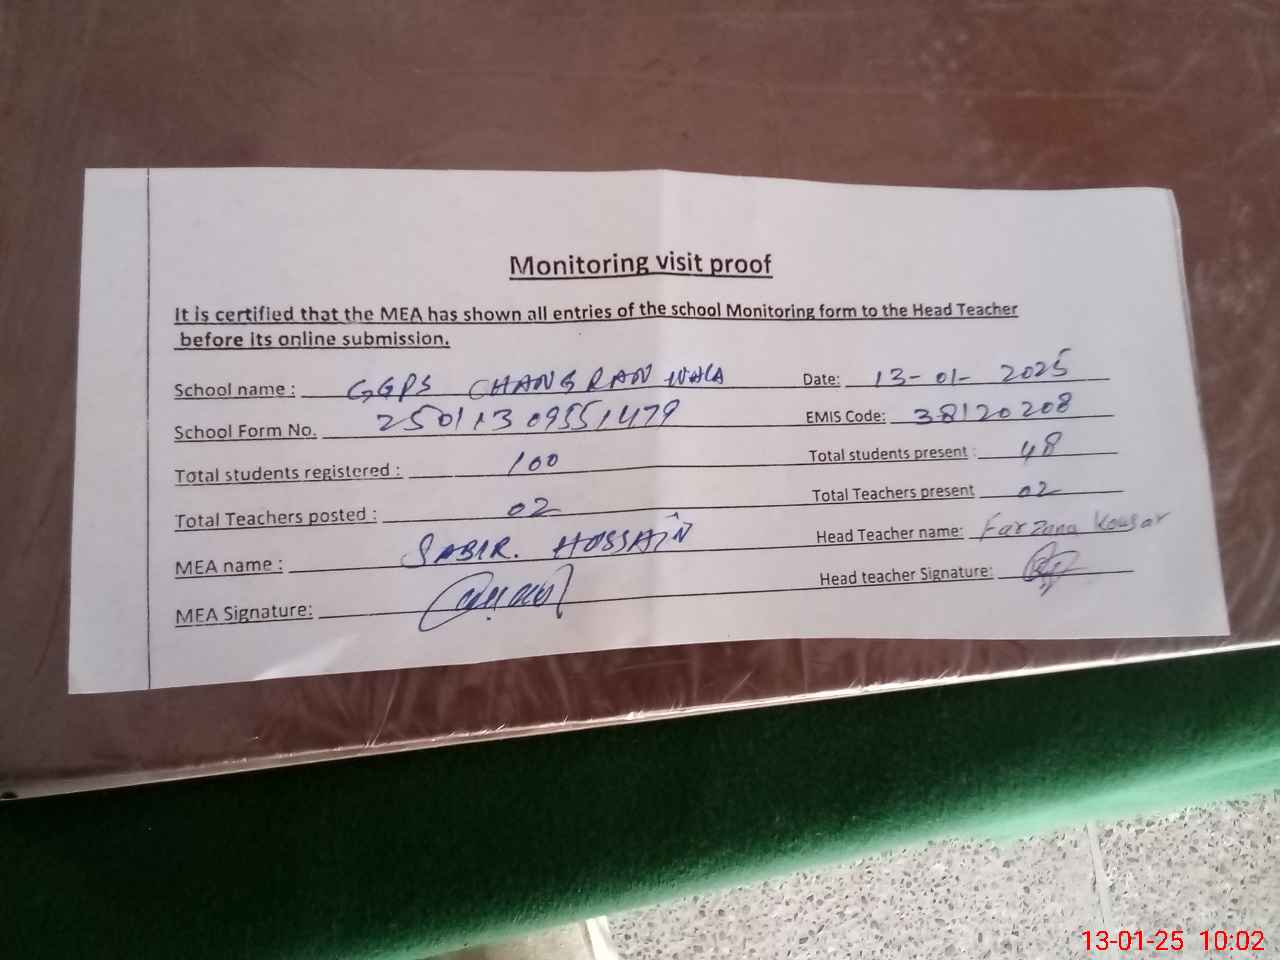 Monitoring visit proof
It is certified that the MEA has shown all entries of the school Monitoring form to the Head Teacher
before its online submission.
School name : GGPS CHANGRANWALA Date: 13-01-2025
School Form No. 25011309551479 EMIS Code: 38120208
Total students registered : 100 Total students present : 48
Total Teachers posted : 02 Total Teachers present 02
MEA name : SABIR. HUSSAIN Head Teacher name: Farzana Kousar
MEA Signature: Head teacher Signature:
13-01-25 10:02